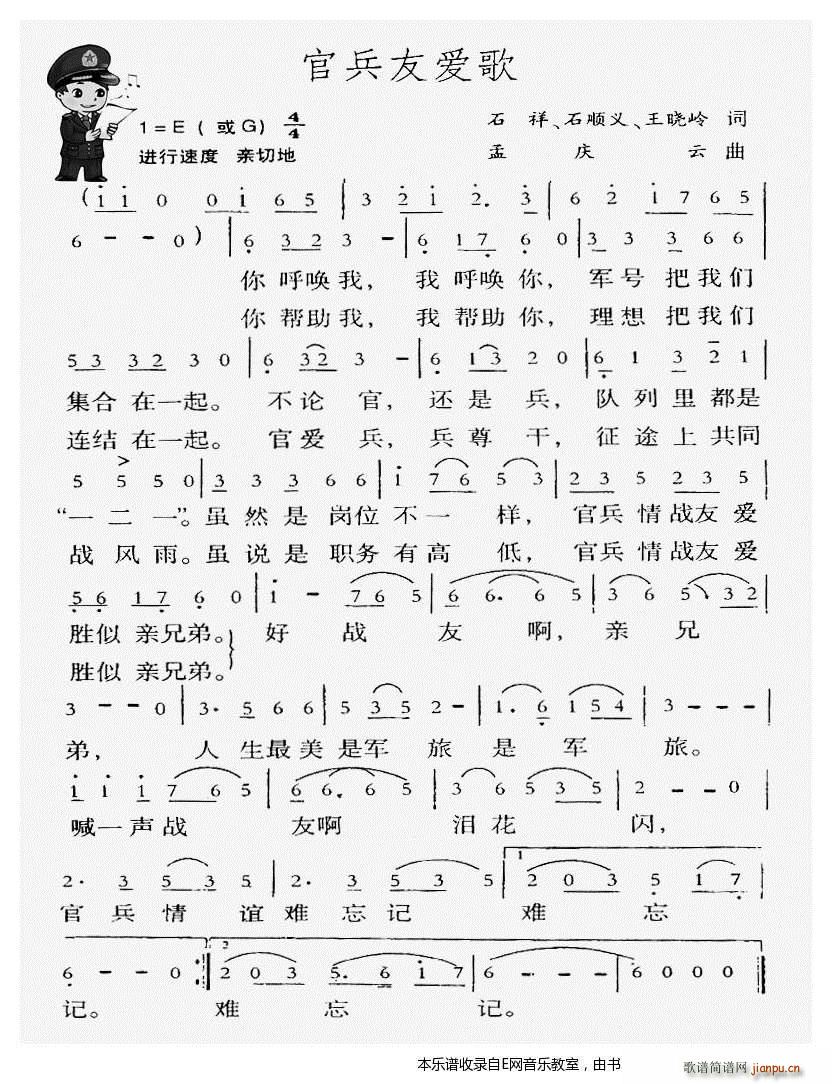 官兵友爱歌
1=E(或G) 4/4
石 祥、石顺义、王晓岭 词
进行速度 亲切地
孟 庆 云 曲
(i i 0 0 i 6 5 | 3 2 i 2. 3 | 6 2 i 7 6 5
6 - - 0) | 6 3 2 3 - | 6 1 7 6 0 | 3 3 6 6 6
你 呼唤 我, 我 呼唤 你, 军号 把我们
你 帮助 我, 我 帮助 你, 理想 把我们
5 3 3 2 3 0 | 6 3 2 3 - | 6 1 3 2 0 | 6 1 3 2 1
集合 在一起。 不论 官, 还是 兵, 队列里都是
连结 在一起。 官爱 兵, 兵尊 干, 征途上共同
5 5 5 0 | 3 3 3 6 6 | i 7 6 5 3 | 2 3 5 2 3 5
“一 二 一”。虽 然 是 岗位 不 一 样, 官兵 情战友 爱
战 风 雨。虽 说 是 职务 有 高 低, 官兵 情战友 爱
5 6 1 7 6 0 | i - 7 6 5 | 6 6. 6 5 | 3 6 5 3 2
胜似 亲兄弟。 好 战 友 啊, 亲 兄
胜似 亲兄弟。
3 - - 0 | 3. 5 6 6 | 5 3 5 2 - | 1. 6 1 5 4 | 3 - - -
弟, 人 生最美 是军 旅 是 军 旅。
i i i 7 6 5 | 6 6. 6 5 | 3 6 5 3 5 | 2 - - 0
喊一声战 友啊 泪花 闪,
2. 3 5 3 5 | 2. 3 5 3 5 | 1 2 0 3 5 1 7
官 兵 情 谊难 忘记 难 忘
6 - - 0 :| 2 2 0 3 5. 6 i 7 | 6 - - - | 6 0 0 0 ||
记。 难 忘 记。
本乐谱收录自E网音乐教室,由书
歌谱简谱网
jianpu.cn